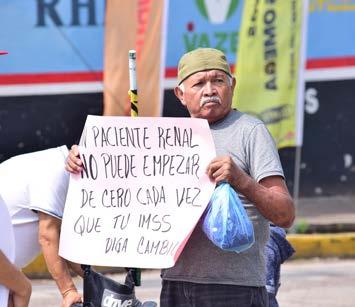 RH
VAZE
OMEGA
PACIENTE RENAL
NO PUEDE EMPEZAR
DE CERO CADA VEZ
QUE TU IMSS
DIGA CAMBIO